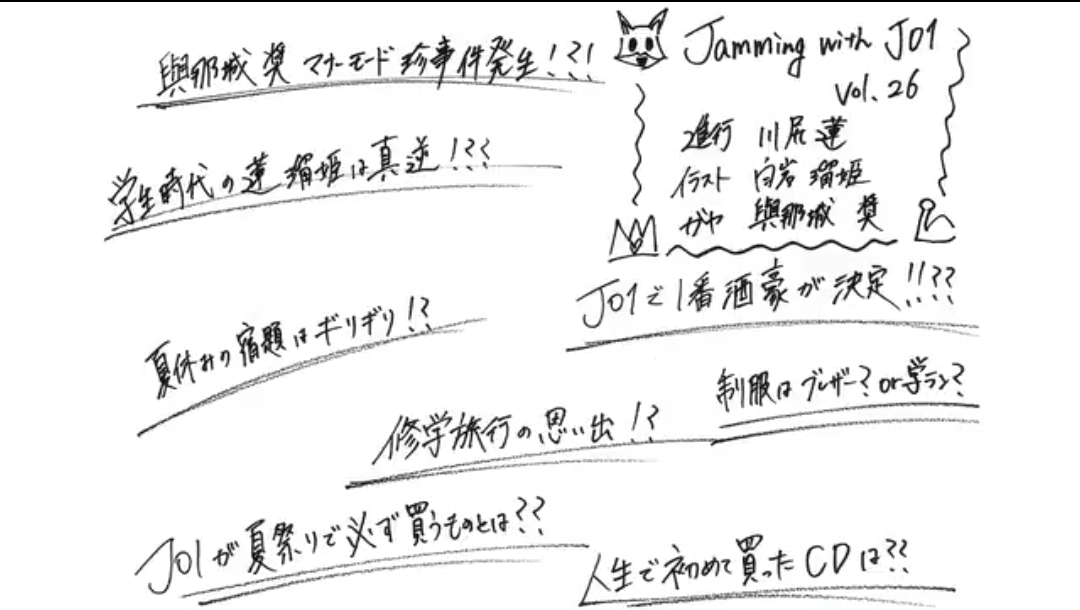 與那城奨 マナーモード珍事件発生!?!
Jamming with JO1
vol.26
進行 川尻蓮
イラスト 白岩瑠姫
ガヤ 與那城 奨
学生時代の蓮 瑠姫は真逆!??
JO1で1番酒豪が決定!!??
夏休みの宿題はギリギリ!?
制服はブレザー?or学ラン?
修学旅行の思い出!?
JO1が夏祭りで必ず買うものとは??
人生で初めて買ったCDは??